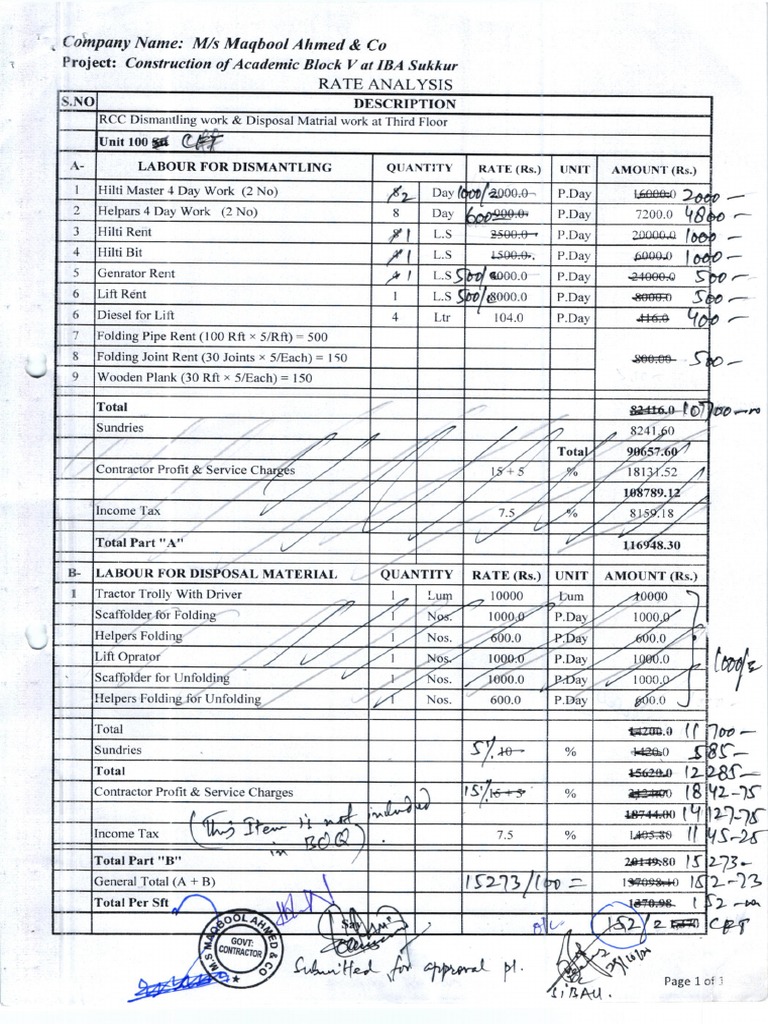 Company Name: M/s Maqbool Ahmed & Co
Project: Construction of Academic Block V at IBA Sukkur
RATE ANALYSIS
S.NO DESCRIPTION
RCC Dismantling work & Disposal Matrial work at Third Floor
Unit 100 Sft CFT
A- LABOUR FOR DISMANTLING QUANTITY RATE (Rs.) UNIT AMOUNT (Rs.)
1 Hilti Master 4 Day Work (2 No) 8 2 Day 1000/ 2000.0 P.Day 16000.0 2000 —
2 Helpars 4 Day Work (2 No) 8 Day 600 900.0 P.Day 7200.0 4800 —
3 Hilti Rent 1 L.S 2500.0 P.Day 20000.0 1000 —
4 Hilti Bit 1 L.S 1500.0 P.Day 6000.0 1000 —
5 Genrator Rent 1 L.S 500/ 000.0 P.Day 24000.0 500 —
6 Lift Rent 1 L.S 500/ 8000.0 P.Day 8000.0 500 —
6 Diesel for Lift 4 Ltr 104.0 P.Day 416.0 400 —
7 Folding Pipe Rent (100 Rft × 5/Rft) = 500
8 Folding Joint Rent (30 Joints × 5/Each) = 150 800.00 500 —
9 Wooden Plank (30 Rft × 5/Each) = 150
Total 82416.0 10700
Sundries 8241.60
Total 90657.60
Contractor Profit & Service Charges 15 + 5 % 18131.52
108789.12
Income Tax 7.5 % 8159.18
Total Part "A" 116948.30
B- LABOUR FOR DISPOSAL MATERIAL QUANTITY RATE (Rs.) UNIT AMOUNT (Rs.)
1 Tractor Trolly With Driver 1 Lum 10000 Lum 10000
Scaffolder for Folding 1 Nos. 1000.0 P.Day 1000.0
Helpers Folding 1 Nos. 600.0 P.Day 600.0
Lift Oprator 1 Nos. 1000.0 P.Day 1000.0 1000/
Scaffolder for Unfolding 1 Nos. 1000.0 P.Day 1000.0
Helpers Folding for Unfolding 1 Nos. 600.0 P.Day 600.0
Total 14200.0 11700 —
Sundries 5% 10 % 1420.0 585 —
Total 15620.0 12285 —
Contractor Profit & Service Charges 15% 15 + 5 % 1842-75
18744.00 14127-75
(This Item is not included
Income Tax 7.5 % 1405.80 1145-25
in BOQ).
Total Part "B" 20149.80 15273 —
General Total (A + B) 15273/100 = 137098.10 152-73
Total Per Sft 1370.98 152
Say 152/ CFT
M/S MAQBOOL AHMED & CO
GOVT: CONTRACTOR
Submitted for approval pl.
SIBAU.
Page 1 of